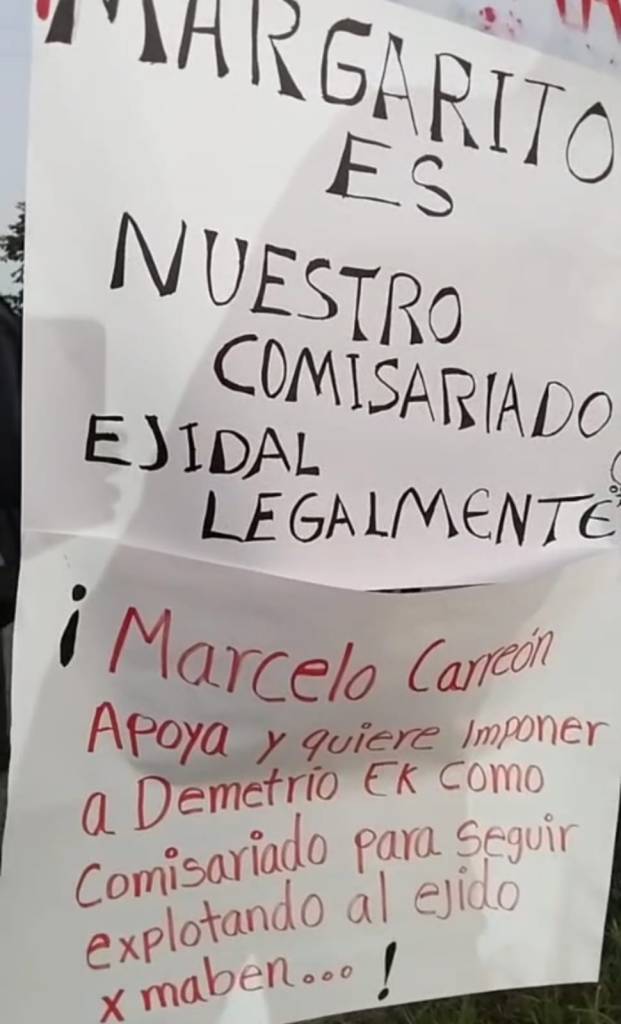 MARGARITO
ES
NUESTRO
COMISARIADO
EJIDAL
LEGALMENTE
¡Marcelo Carreón
Apoya y quiere Imponer
a Demetrio EK Como
Comisariado para seguir
explotando al ejido
x maben...!